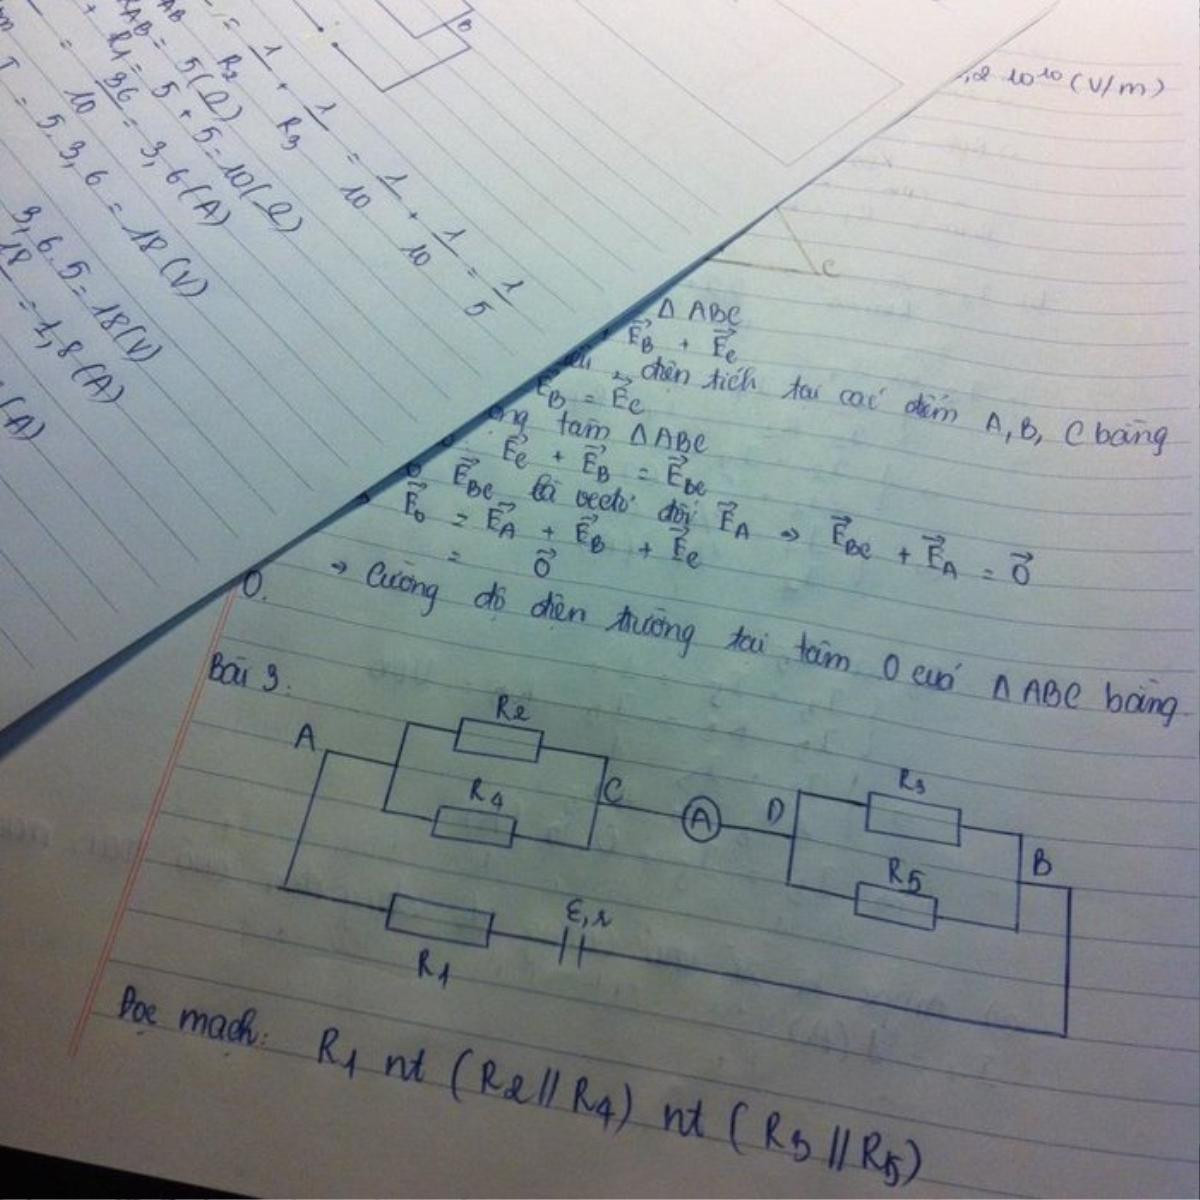 B
AB
RAB = 5(Ω)
R1 = 5 + 5 = 10(Ω)
= 36/10 = 3,6(A)
= 5.3,6 = 18(V)
= 1/R2 + 1/R3 = 1/10 + 1/10 = 1/5
3,6.5 = 18(V)
18 = 1,8(A)
(A)
,2 10^10 (V/m)
C
Δ ABC
E⃗B + E⃗C
điện tích tại các điểm A, B, C bằng
E⃗B = E⃗C
ong tâm Δ ABC
E⃗C + E⃗B = E⃗BC
E⃗BC là vectơ đối E⃗A → E⃗BC + E⃗A = 0⃗
→ E⃗o = E⃗A + E⃗B + E⃗C
= 0⃗
→ Cường độ điện trường tại tâm O của Δ ABC bằng
0.
Bài 3.
R2
A
R4
C
A
D
R3
R5
B
R1
ε,r
Đọc mạch: R1 nt (R2 // R4) nt (R3 // R5)